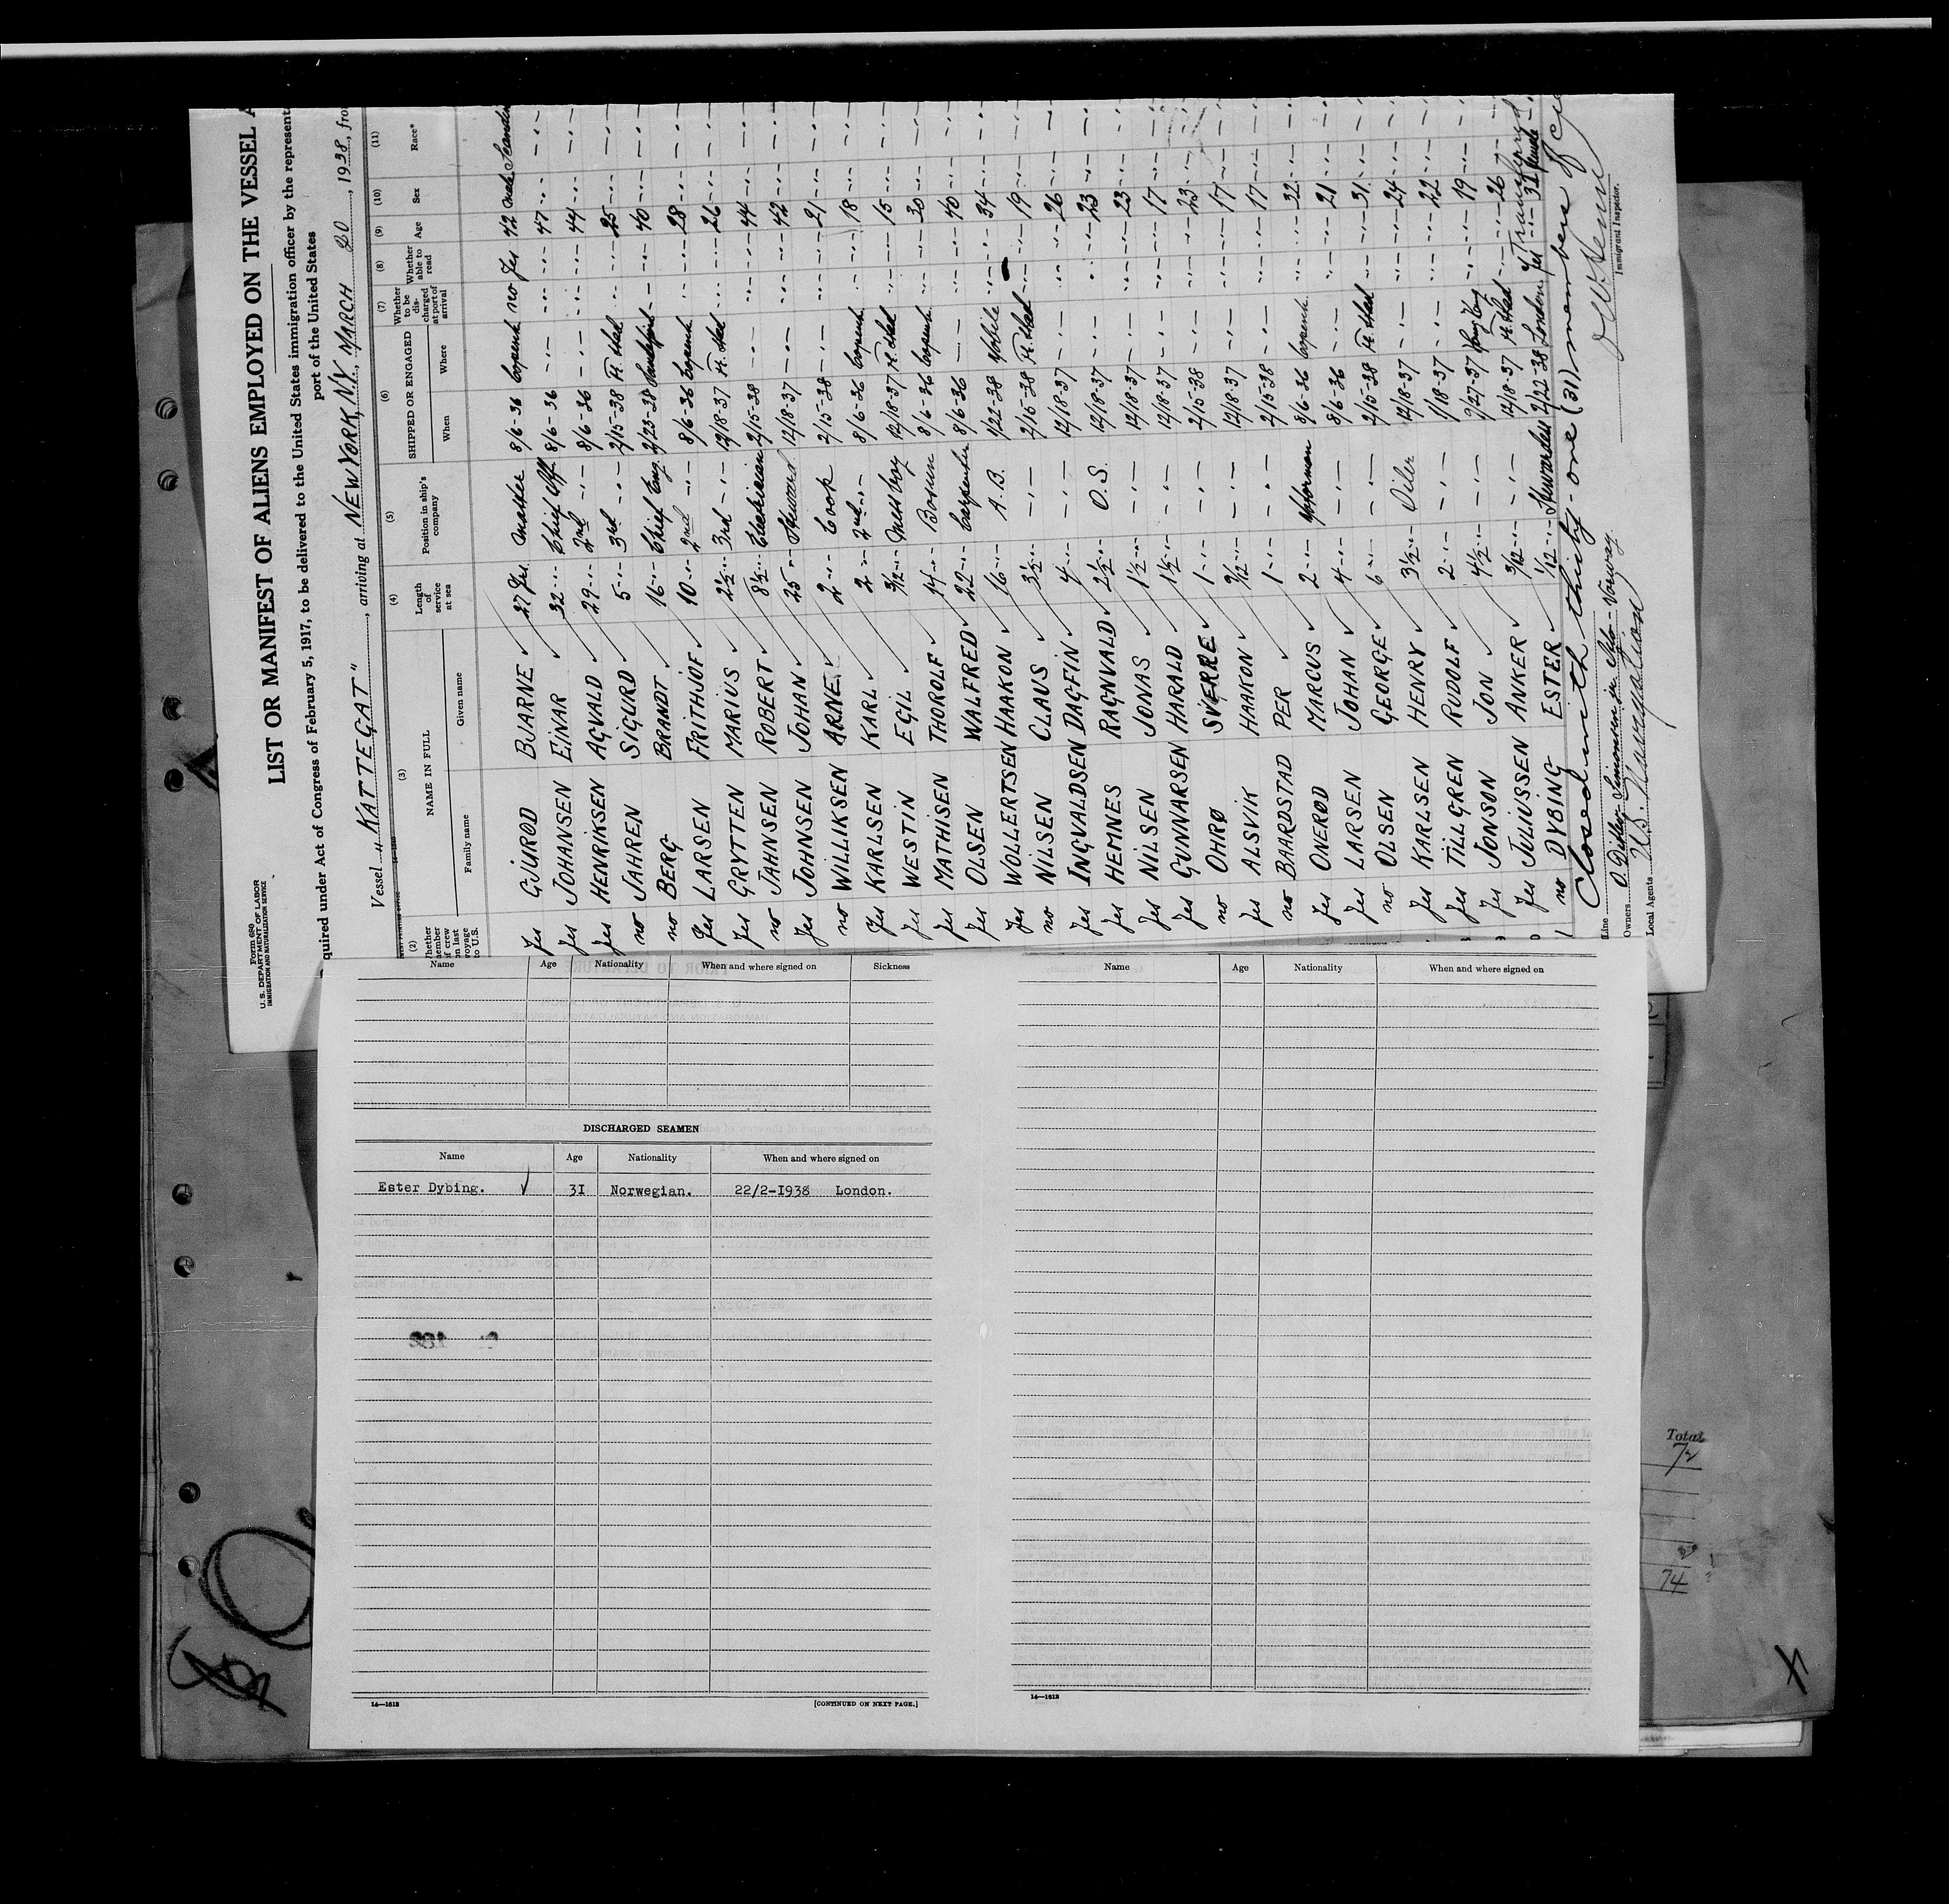 Form 680
U. S. DEPARTMENT OF LABOR
IMMIGRATION AND NATURALIZATION SERVICE
LIST OR MANIFEST OF ALIENS EMPLOYED ON THE VESSEL A
quired under Act of Congress of February 5, 1917, to be delivered to the United States immigration officer by the represent
port of the United States
Vessel "KATTEGAT", arriving at NEW YORK, N.Y. MARCH 20, 1938, fro
(2) (3) (4) (5) (6) (7) (8) (9) (10) (11)
hether ember f crew n last voyage to U.S. NAME IN FULL Length of service at sea Position in ship's company SHIPPED OR ENGAGED Whether to be discharged at port of arrival Whether able to read Age Sex Race*
Family name Given name When Where
Yes GJURØD BJARNE 27 Yrs. Master 8/6-36 Copenh no Yes 42 male Scandin
Yes JOHANSEN EINAR 32 -"- Chief Off. 8/6-36 -"- -"- -"- 47 -"- -"-
Yes HENRIKSEN AGVALD 29 -"- 2nd -"- 8/6-36 -"- -"- -"- 44 -"- -"-
no JAHREN SIGURD 5 -"- 3rd -"- 2/15-38 -"- -"- 25 -"- -"-
no BERG BRANDT 16 -"- Chief Eng. 2/23-38 -"- -"- 40 -"- -"-
Yes LARSEN FRITHJOF 10 -"- 2nd -"- 8/6-36 Copenh -"- -"- 28 -"- -"-
Yes GRYTTEN MARIUS 2½ -"- 3rd -"- 12/18-37 -"- -"- 26 -"- -"-
no JAHNSEN ROBERT 8½ -"- Electrician 2/15-38 -"- -"- -"- 44 -"- -"-
Yes JOHNSEN JOHAN 25 -"- Steward 12/18-37 -"- -"- -"- 42 -"- -"-
no WILLIKSEN ARNE 2 -"- Cook 2/15-38 -"- -"- -"- 21 -"- -"-
Yes KARLSEN KARL 2 -"- 2nd -"- 8/6-36 Copenh -"- -"- 18 -"- -"-
Yes WESTIN EGIL 3/12 -"- Mess boy 12/18-37 -"- -"- 15 -"- -"-
Yes MATHISEN THOROLF 14 -"- Bosun 8/6-36 Copenh -"- -"- 30 -"- -"-
Yes OLSEN WALFRED 22 -"- Carpenter 8/6-36 -"- -"- -"- 40 -"- -"-
Yes WOLLERTSEN HAAKON 16 -"- A.B. 1/22-38 Mobile -"- -"- 34 -"- -"-
no NILSEN CLAUS 3½ -"- -"- 2/15-38 -"- -"- 19 -"- -"-
Yes INGVALDSEN DAGFIN 4 -"- -"- 12/18-37 -"- -"- -"- 26 -"- -"-
Yes HEMNES RAGNVALD 2½ -"- O.S. 12/18-37 -"- -"- -"- 23 -"- -"-
Yes NILSEN JONAS 1½ -"- -"- 12/18-37 -"- -"- -"- 23 -"- -"-
Yes GUNNARSEN HARALD 1½ -"- -"- 12/18-37 -"- -"- -"- 17 -"- -"-
no OHRØ SVERRE 1 -"- -"- 2/15-38 -"- -"- -"- 23 -"- -"-
Yes ALSVIK HAAKON 9/12 -"- -"- 12/18-37 -"- -"- -"- 17 -"- -"-
no BAARDSTAD PER 1 -"- -"- 2/15-38 -"- -"- -"- 17 -"- -"-
Yes ONERØD MARCUS 2 -"- 8/6-36 Copenh -"- -"- 32 -"- -"-
Yes LARSEN JOHAN 4 -"- -"- 8/6-36 -"- -"- -"- 21 -"- -"-
no OLSEN GEORGE 6 -"- -"- 2/15-38 -"- -"- 31 -"- -"-
Yes KARLSEN HENRY 3½ -"- Oiler 12/18-37 -"- -"- -"- 24 -"- -"-
Yes TILLGREN RUDOLF 2 -"- -"- 1/18-37 -"- -"- -"- 22 -"- -"-
Yes JONSON JON 4½ -"- -"- 9/27-37 -"- -"- 19 -"- -"-
Yes JULIUSSEN ANKER 3/12 -"- -"- 12/18-37 -"- -"- 26 -"- -"-
no DYBING ESTER 1/12 -"- Stewardess 2/22-38 London Yes -"- 31 female -"-
Closed with thirty-one (31) members of
Line
Immigrant Inspector.
Owners O. Ditlev-Simonsen jr. Oslo - Norway.
Local Agents U.S. Navigation
Name Age Nationality When and where signed on Sickness
DISCHARGED SEAMEN
Name Age Nationality When and where signed on
Ester Dybing. 3I Norwegian. 22/2-I938 London.
14—1618 [CONTINUED ON NEXT PAGE.]
Name Age Nationality When and where signed on
14—1618
Total
72
74